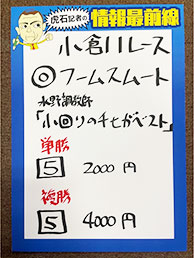 虎石記者の
情報最前線
小倉11レース
◎フームスムート
水野調教師
「小回りの千七がベスト」
単勝
5 2000円
複勝
5 4000円